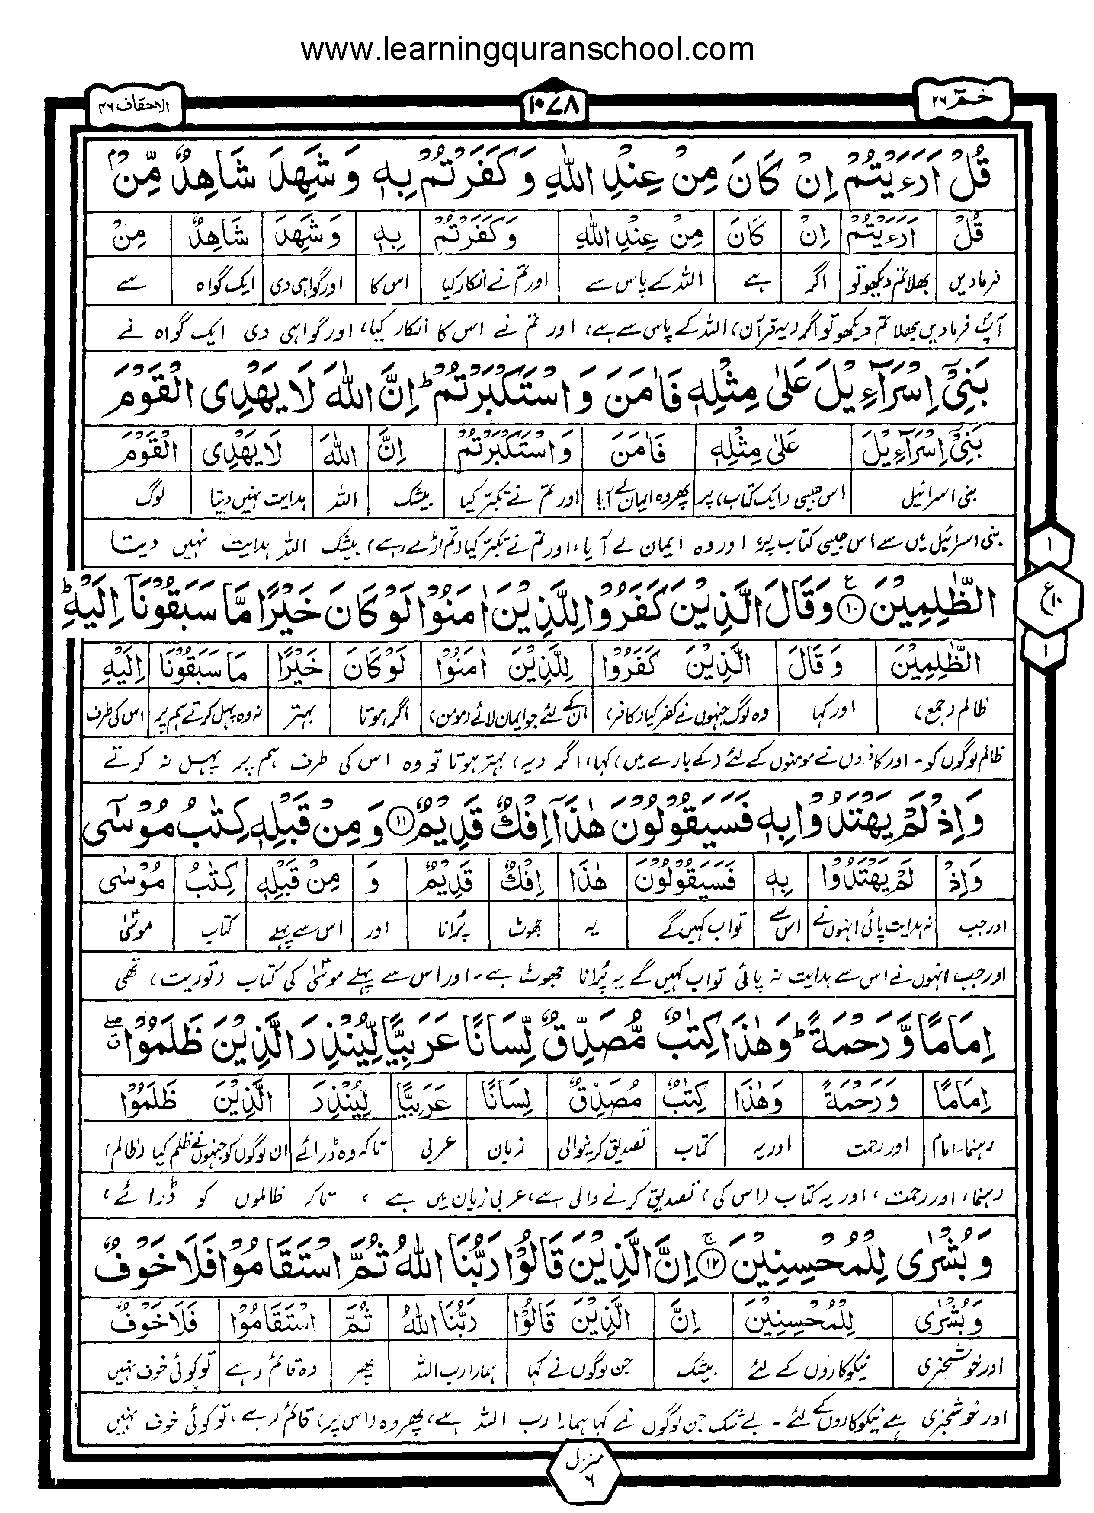 www.learningquranschool.com
حٰمٓ ٢٦
١٠٧٨
الاحقاف ٤٦
قُلْ اَرَءَيْتُمْ اِنْ كَانَ مِنْ عِنْدِ اللّٰهِ وَكَفَرْتُمْ بِهٖ وَشَهِدَ شَاهِدٌ مِّنْۢ
قُلْ اَرَءَيْتُمْ اِنْ كَانَ مِنْ عِنْدِ اللّٰهِ وَكَفَرْتُمْ بِهٖ وَشَهِدَ شَاهِدٌ مِنْ
فرمادیں بھلا تم دیکھو تو اگر ہے اللہ کے پاس سے اور تم نے انکار کیا اس کا اور گواہی دی ایک گواہ سے
آپؐ فرمادیں بھلا تم دیکھو تو اگر (یہ قرآن) اللہ کے پاس سے ہے، اور تم نے اس کا انکار کیا، اور گواہی دی ایک گواہ نے
بَنِيْۤ اِسْرَآءِيْلَ عَلٰى مِثْلِهٖ فَاٰمَنَ وَاسْتَكْبَرْتُمْ ؕ اِنَّ اللّٰهَ لَا يَهْدِى الْقَوْمَ
بَنِيْۤ اِسْرَآءِيْلَ عَلٰى مِثْلِهٖ فَاٰمَنَ وَاسْتَكْبَرْتُمْ اِنَّ اللّٰهَ لَا يَهْدِى الْقَوْمَ
بنی اسرائیل اس جیسی (ایک کتاب) پر پھر وہ ایمان لے آیا اور تم نے تکبر کیا بیشک اللہ ہدایت نہیں دیتا لوگ
بنی اسرائیل میں سے اس جیسی کتاب پر، اور وہ ایمان لے آیا، اور تم نے تکبر کیا (تم اڑے رہے) بیشک اللہ ہدایت نہیں دیتا
١
ع ١٠
١
الظّٰلِمِيْنَ ۝١٠ وَقَالَ الَّذِيْنَ كَفَرُوْا لِلَّذِيْنَ اٰمَنُوْا لَوْ كَانَ خَيْرًا مَّا سَبَقُوْنَاۤ اِلَيْهِ ؕ
الظّٰلِمِيْنَ وَقَالَ الَّذِيْنَ كَفَرُوْا لِلَّذِيْنَ اٰمَنُوْا لَوْ كَانَ خَيْرًا مَا سَبَقُوْنَا اِلَيْهِ
ظالم (جمع) اور کہا وہ لوگ جنہوں نے کفر کیا (کافر) ان کے لئے جو ایمان لائے (مومن) اگر ہوتا بہتر نہ وہ پہل کرتے ہم پر اس کی طرف
ظالم لوگوں کو۔ اور کافروں نے مومنوں کے لئے (کے بارے میں) کہا، اگر (یہ) بہتر ہوتا تو وہ اس کی طرف ہم پر پہل نہ کرتے
وَاِذْ لَمْ يَهْتَدُوْا بِهٖ فَسَيَقُوْلُوْنَ هٰذَاۤ اِفْكٌ قَدِيْمٌ ۝١١ وَمِنْ قَبْلِهٖ كِتٰبُ مُوْسٰٓى
وَاِذْ لَمْ يَهْتَدُوْا بِهٖ فَسَيَقُوْلُوْنَ هٰذَا اِفْكٌ قَدِيْمٌ وَ مِنْ قَبْلِهٖ كِتٰبُ مُوْسٰٓى
اور جب نہ ہدایت پائی انہوں نے اس سے تو اب کہیں گے یہ جھوٹ پُرانا اور اس سے پہلے کتاب موسیٰؑ
اور جب انہوں نے اس سے ہدایت نہ پائی تو اب کہیں گے یہ پُرانا جھوٹ ہے۔ اور اس سے پہلے موسیٰؑ کی کتاب (توریت) تھی
اِمَامًا وَّرَحْمَةً ؕ وَهٰذَا كِتٰبٌ مُّصَدِّقٌ لِّسَانًا عَرَبِيًّا لِّيُنْذِرَ الَّذِيْنَ ظَلَمُوْا ۖ
اِمَامًا وَرَحْمَةً وَهٰذَا كِتٰبٌ مُصَدِّقٌ لِسَانًا عَرَبِيًّا لِيُنْذِرَ الَّذِيْنَ ظَلَمُوْا
رہنما۔امام اور رحمت اور یہ کتاب تصدیق کرنیوالی زبان عربی تاکہ وہ ڈرائے ان لوگوں کو جنہوں نے ظلم کیا (ظالم)
رہنما، اور رحمت، اور یہ کتاب (اس کی) تصدیق کرنے والی ہے، عربی زبان میں ہے، تاکہ ظالموں کو ڈرائے،
وَبُشْرٰى لِلْمُحْسِنِيْنَ ۝١٢ اِنَّ الَّذِيْنَ قَالُوْا رَبُّنَا اللّٰهُ ثُمَّ اسْتَقَامُوْا فَلَا خَوْفٌ
وَبُشْرٰى لِلْمُحْسِنِيْنَ اِنَّ الَّذِيْنَ قَالُوْا رَبُّنَا اللّٰهُ ثُمَّ اسْتَقَامُوْا فَلَا خَوْفٌ
اور خوشخبری نیکوکاروں کے لئے بیشک جن لوگوں نے کہا ہمارا رب اللہ پھر وہ قائم رہے تو کوئی خوف نہیں
اور خوشخبری ہے نیکوکاروں کے لئے۔ بے شک جن لوگوں نے کہا ہمارا رب اللہ ہے، پھر وہ (اس پر) قائم رہے، تو کوئی خوف نہیں
منزل
٦